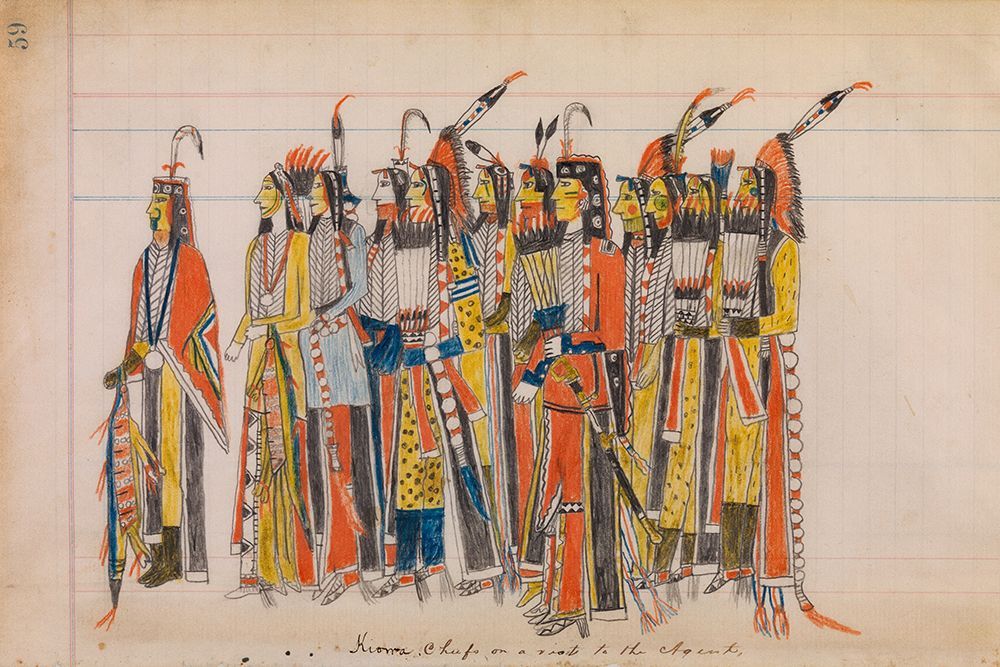 59
Kiowa Chiefs on a visit to the Agent,